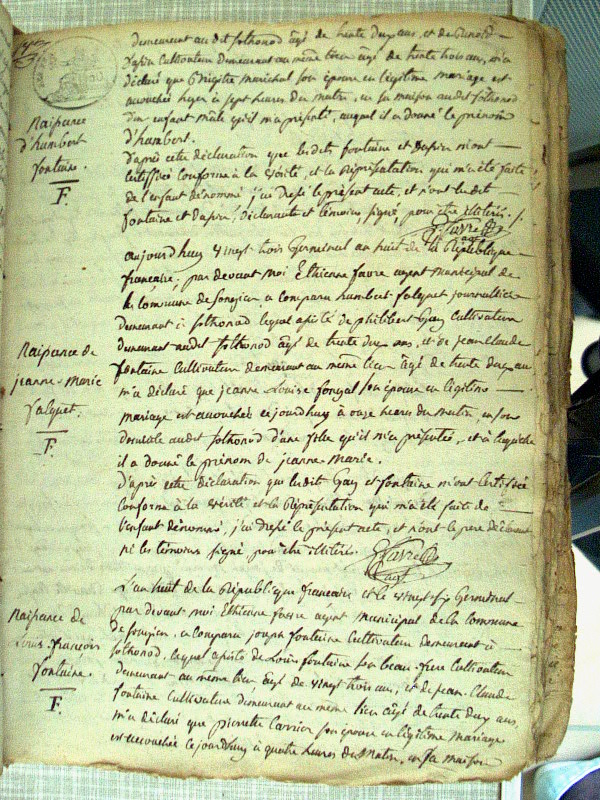 demeurant au dit Sothonod âgé de trente deux ans, et de Benoit
Dapin Cultivateur demeurant au même lieu âgé de trente trois ans, m'a
déclaré que Brigitte marichal son épouse en légitime mariage est
accouchée hyer à sept heures du matin, en sa maison audit Sothonod
d'un enfant mâle qu'il m'a présenté, auquel il a donné le prénom
d'humbert.
D'après cette déclaration que lesdits fontaine et Dapin m'ont
certifiée conforme à la vérité, et la Représentation qui m'a été faite
de l'enfant dénommé, j'ai dressé le présent acte, et n'ont ledit
fontaine et Dapin, déclarants et témoins, signé, pour être illiterés.
Naissance
d'humbert
fontaine.
F.
favre
agt
aujourdhuy vingt trois Germinal an huit de la République
française, par devant moi Ethienne favre agent municipal de
la commune de Songieu, a comparu humbert falquet journallier
demeurant à Sothonod lequel assisté de philibert Guy Cultivateur
demeurant audit Sothonod âgé de trente deux ans, et de jean Claude
fontaine Cultivateur demeurant au même lieu âgé de trente deux ans
m'a déclaré que jeanne Louise son épouse en légitime
mariage est accouchée cejourdhuy à onze heures du matin en son
domicile audit Sothonod d'une fille qu'il m'a présentée, et à laquelle
il a donné le prénom de jeanne marie.
D'après cette déclaration que ledit Guy et fontaine m'ont certifiée
conforme à la vérité et la Représentation qui m'a été faite de
l'enfant dénommé, j'ai dressé le présent acte, et n'ont le pere déclarant
ni les témoins signé pour être illiterés.
Naissance de
jeanne-marie
falquet.
F.
favre
agt
L'an huit de la République française et le vingt six Germinal
par devant moi Ethienne favre agent municipal de la commune
de Songieu, a comparu joseph fontaine Cultivateur demeurant à
Sothonod, lequel assisté de Louis fontaine son beau-frere Cultivateur
demeurant au même lieu âgé de vingt trois ans, et de jean-Claude
fontaine Cultivateur demeurant au même lieu âgé de trente deux ans,
m'a déclaré que pierrette Carrier son épouse en légitime mariage
est accouchée cejourdhuy à quatre heures du Matin, en sa maison
Naissance de
Louis-françois
fontaine.
F.